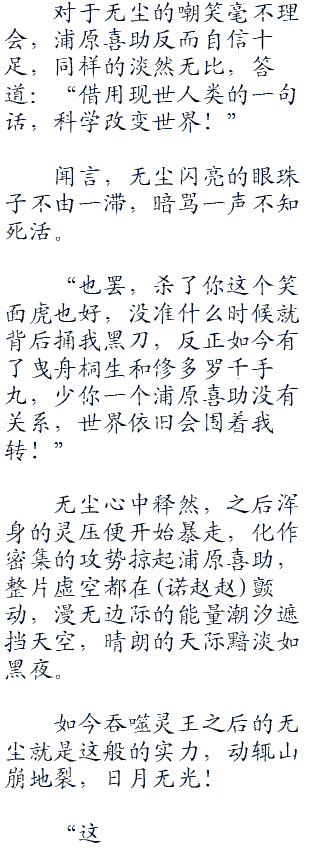 对于无尘的嘲笑毫不理
会，浦原喜助反而自信十
足，同样的淡然无比，答
道：“借用现世人类的一句
话，科学改变世界！”
闻言，无尘闪亮的眼珠
子不由一滞，暗骂一声不知
死活。
“也罢，杀了你这个笑
面虎也好，没准什么时候就
背后捅我黑刀，反正如今有
了曳舟桐生和修多罗千手
丸，少你一个浦原喜助没有
关系，世界依旧会围着我
转！”
无尘心中释然，之后浑
身的灵压便开始暴走，化作
密集的攻势掠起浦原喜助，
整片虚空都在(诺赵赵)颤
动，漫无边际的能量潮汐遮
挡天空，晴朗的天际黯淡如
黑夜。
如今吞噬灵王之后的无
尘就是这般的实力，动辄山
崩地裂，日月无光！
“这